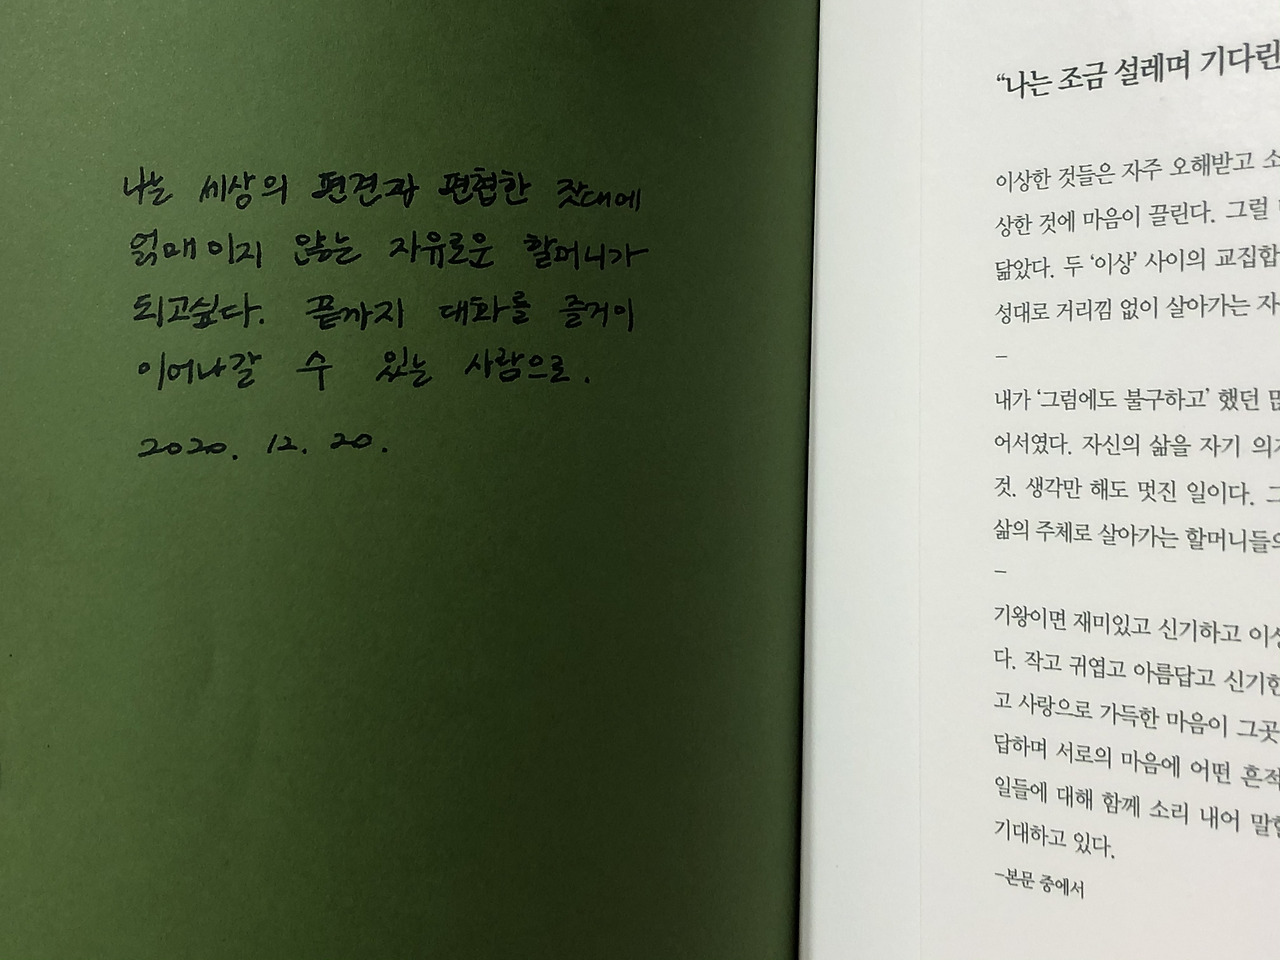 나는 세상의 편견과 편협한 잣대에
얽매이지 않는 자유로운 할머니가
되고싶다. 끝까지 대화를 즐거이
이어나갈 수 있는 사람으로.
2020. 12. 20.
“나는 조금 설레며 기다린
이상한 것들은 자주 오해받고 소
상한 것에 마음이 끌린다. 그럴
닮았다. 두 ‘이상’ 사이의 교집합
성대로 거리낌 없이 살아가는 자
–
내가 ‘그럼에도 불구하고’ 했던
어서였다. 자신의 삶을 자기 의
것. 생각만 해도 멋진 일이다. 그
삶의 주체로 살아가는 할머니들의
–
기왕이면 재미있고 신기하고 이상
다. 작고 귀엽고 아름답고 신기한
고 사랑으로 가득한 마음이 그곳
답하며 서로의 마음에 어떤 흔적
일들에 대해 함께 소리 내어 말할
기대하고 있다.
–본문 중에서